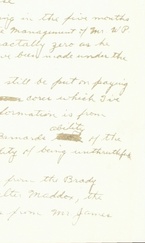 ing in the five months
Management of Mr. V.P.
actually zero as he
been made under the
still be put on paying
cows which I've
formation is from
ability
of the
ity of being untruthful
from the Brady
Maddox, the
from Mr. James